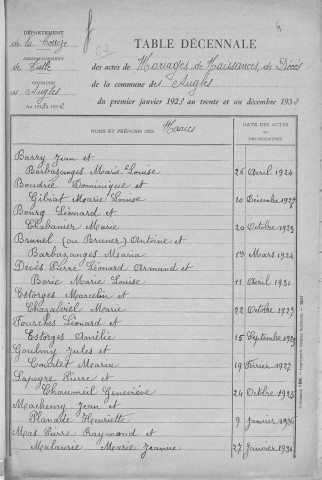 DÉPARTEMENT
de la Corrèze
ARRONDISSEMENT
de Tulle
COMMUNE
des Angles
TABLE DÉCENNALE
des actes de Mariages, de Naissances, de Décès
de la commune des Angles
du premier janvier 1923 au trente et un décembre 1932
NOMS ET PRÉNOMS DES Mariés
DATE DES ACTES
Barry Jean et
Barbazanges Marie Louise 26 Avril 1924
Boudrie Dominique et
Gibiat Marie Louise 10 Décembre 1927
Bourg Léonard et
Chabanier Marie 20 Octobre 1923
Brunel (ou Brunes) Antoine et
Barbazanges Maria Mars 1924
Devès Pierre Léonard Armand et
Borie Marie Louise 11 Avril 1931
Estorges Marcelin et
Chazalviel Marie 22 Octobre 1927
Fourches Léonard et
Estorges Amélie 15 Septembre
Goulmy Jules et
Courtet Marie 19 Février 1927
Lapeyre Pierre et
Chaumeil Geneviève 24 Octobre 1925
Machemy Jean et
Planade Henriette 9 Janvier 1926
Mas Pierre Raymond et
Malaurie Marie Jeanne 27 Janvier